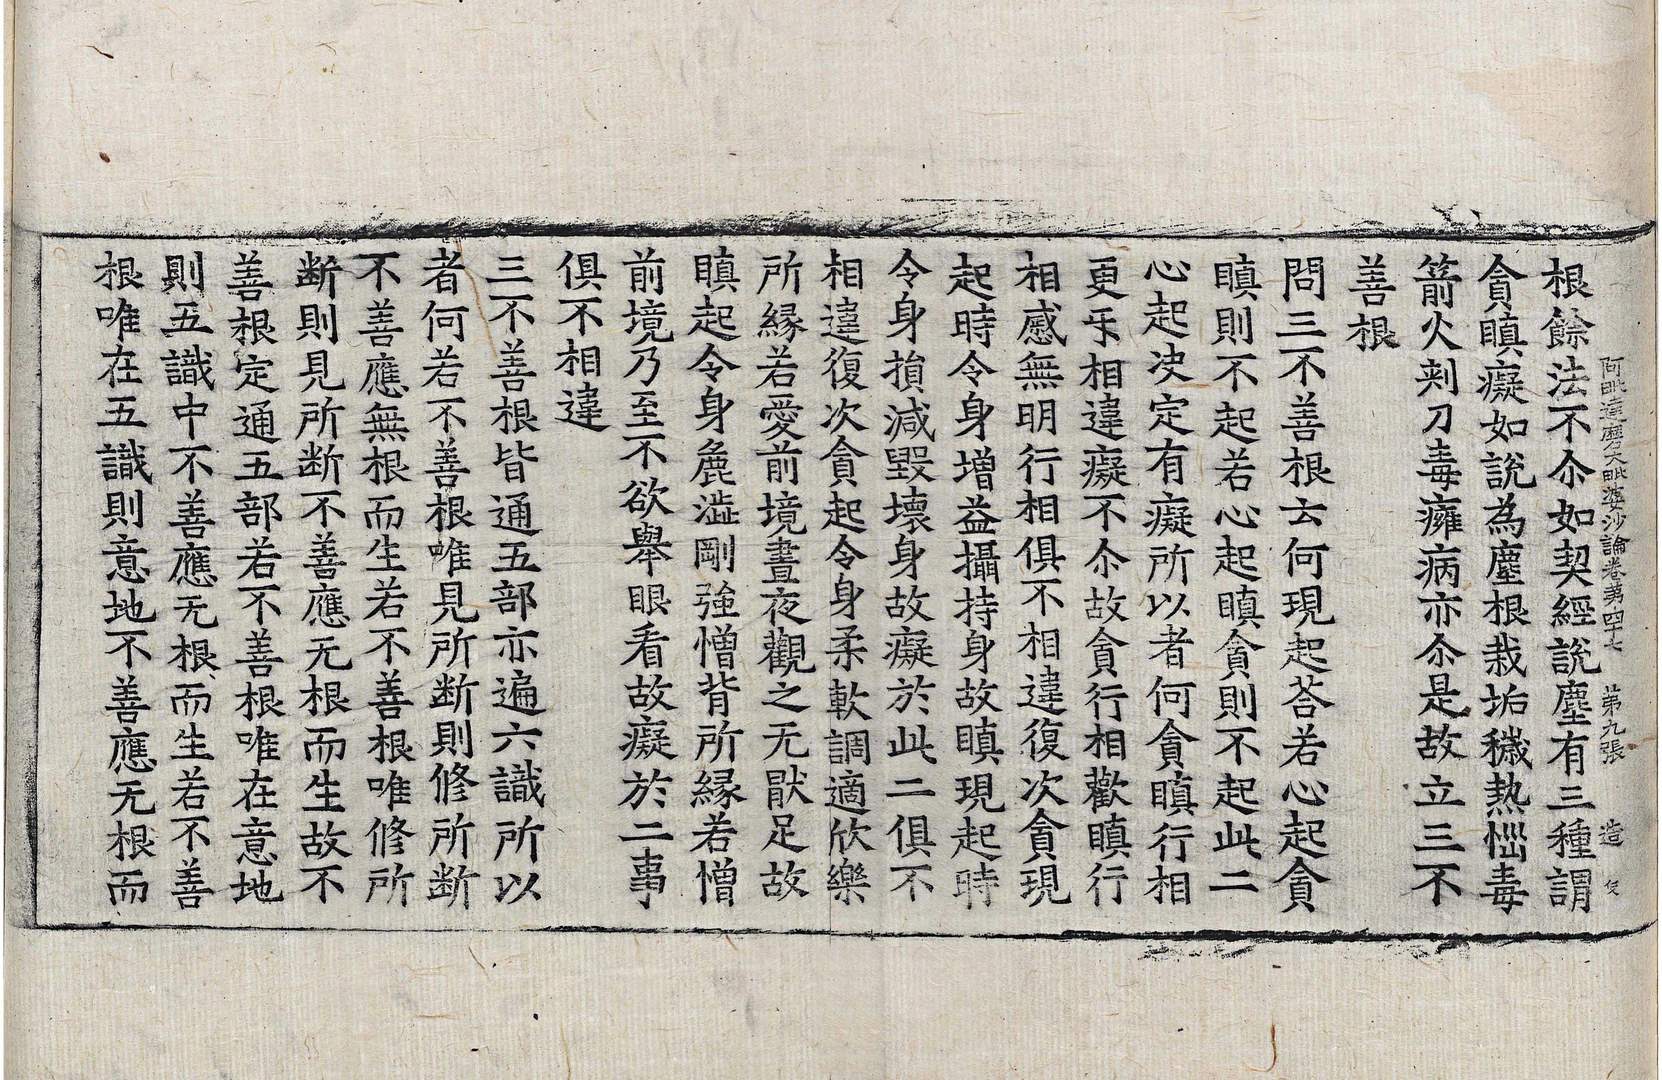 阿毗達磨大毗婆沙論卷第四十七　第九張　造
根餘法不尒如契經說塵有三種謂
貪瞋癡如說為塵根栽垢穢熱惱毒
箭火刺刀毒癰病亦尒是故立三不
善根
問三不善根云何現起荅若心起貪
瞋則不起若心起瞋貪則不起此二
心起决定有癡所以者何貪瞋行相
更㸦相違癡不尒故貪行相歡瞋行
相慼無明行相俱不相違復次貪現
起時令身增益攝持身故瞋現起時
令身損減毀壞身故癡於此二俱不
相違復次貪起令身柔軟調適欣樂
所縁若愛前境晝夜觀之无猒足故
瞋起令身麁澁剛強憎背所縁若憎
前境乃至不欲舉眼看故癡於二事
俱不相違
三不善根皆通五部亦遍六識所以
者何若不善根唯見所断則修所断
不善應無根而生若不善根唯修所
断則見所断不善應无根而生故不
善根定通五部若不善根唯在意地
則五識中不善應无根而生若不善
根唯在五識則意地不善應无根而